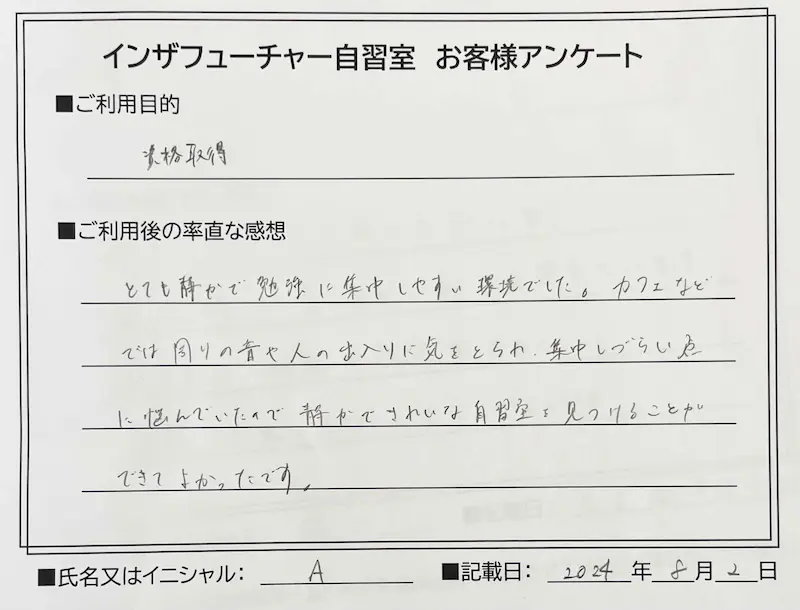 インザフューチャー自習室 お客様アンケート
■ご利用目的
資格取得
■ご利用後の率直な感想
とても静かで勉強に集中しやすい環境でした。カフェなど
では周りの音や人の出入りに気をとられ、集中しづらい点
に悩んでいたので静かできれいな自習室を見つけることが
できてよかったです。
■氏名又はイニシャル： A ■記載日： 2024年8月2日